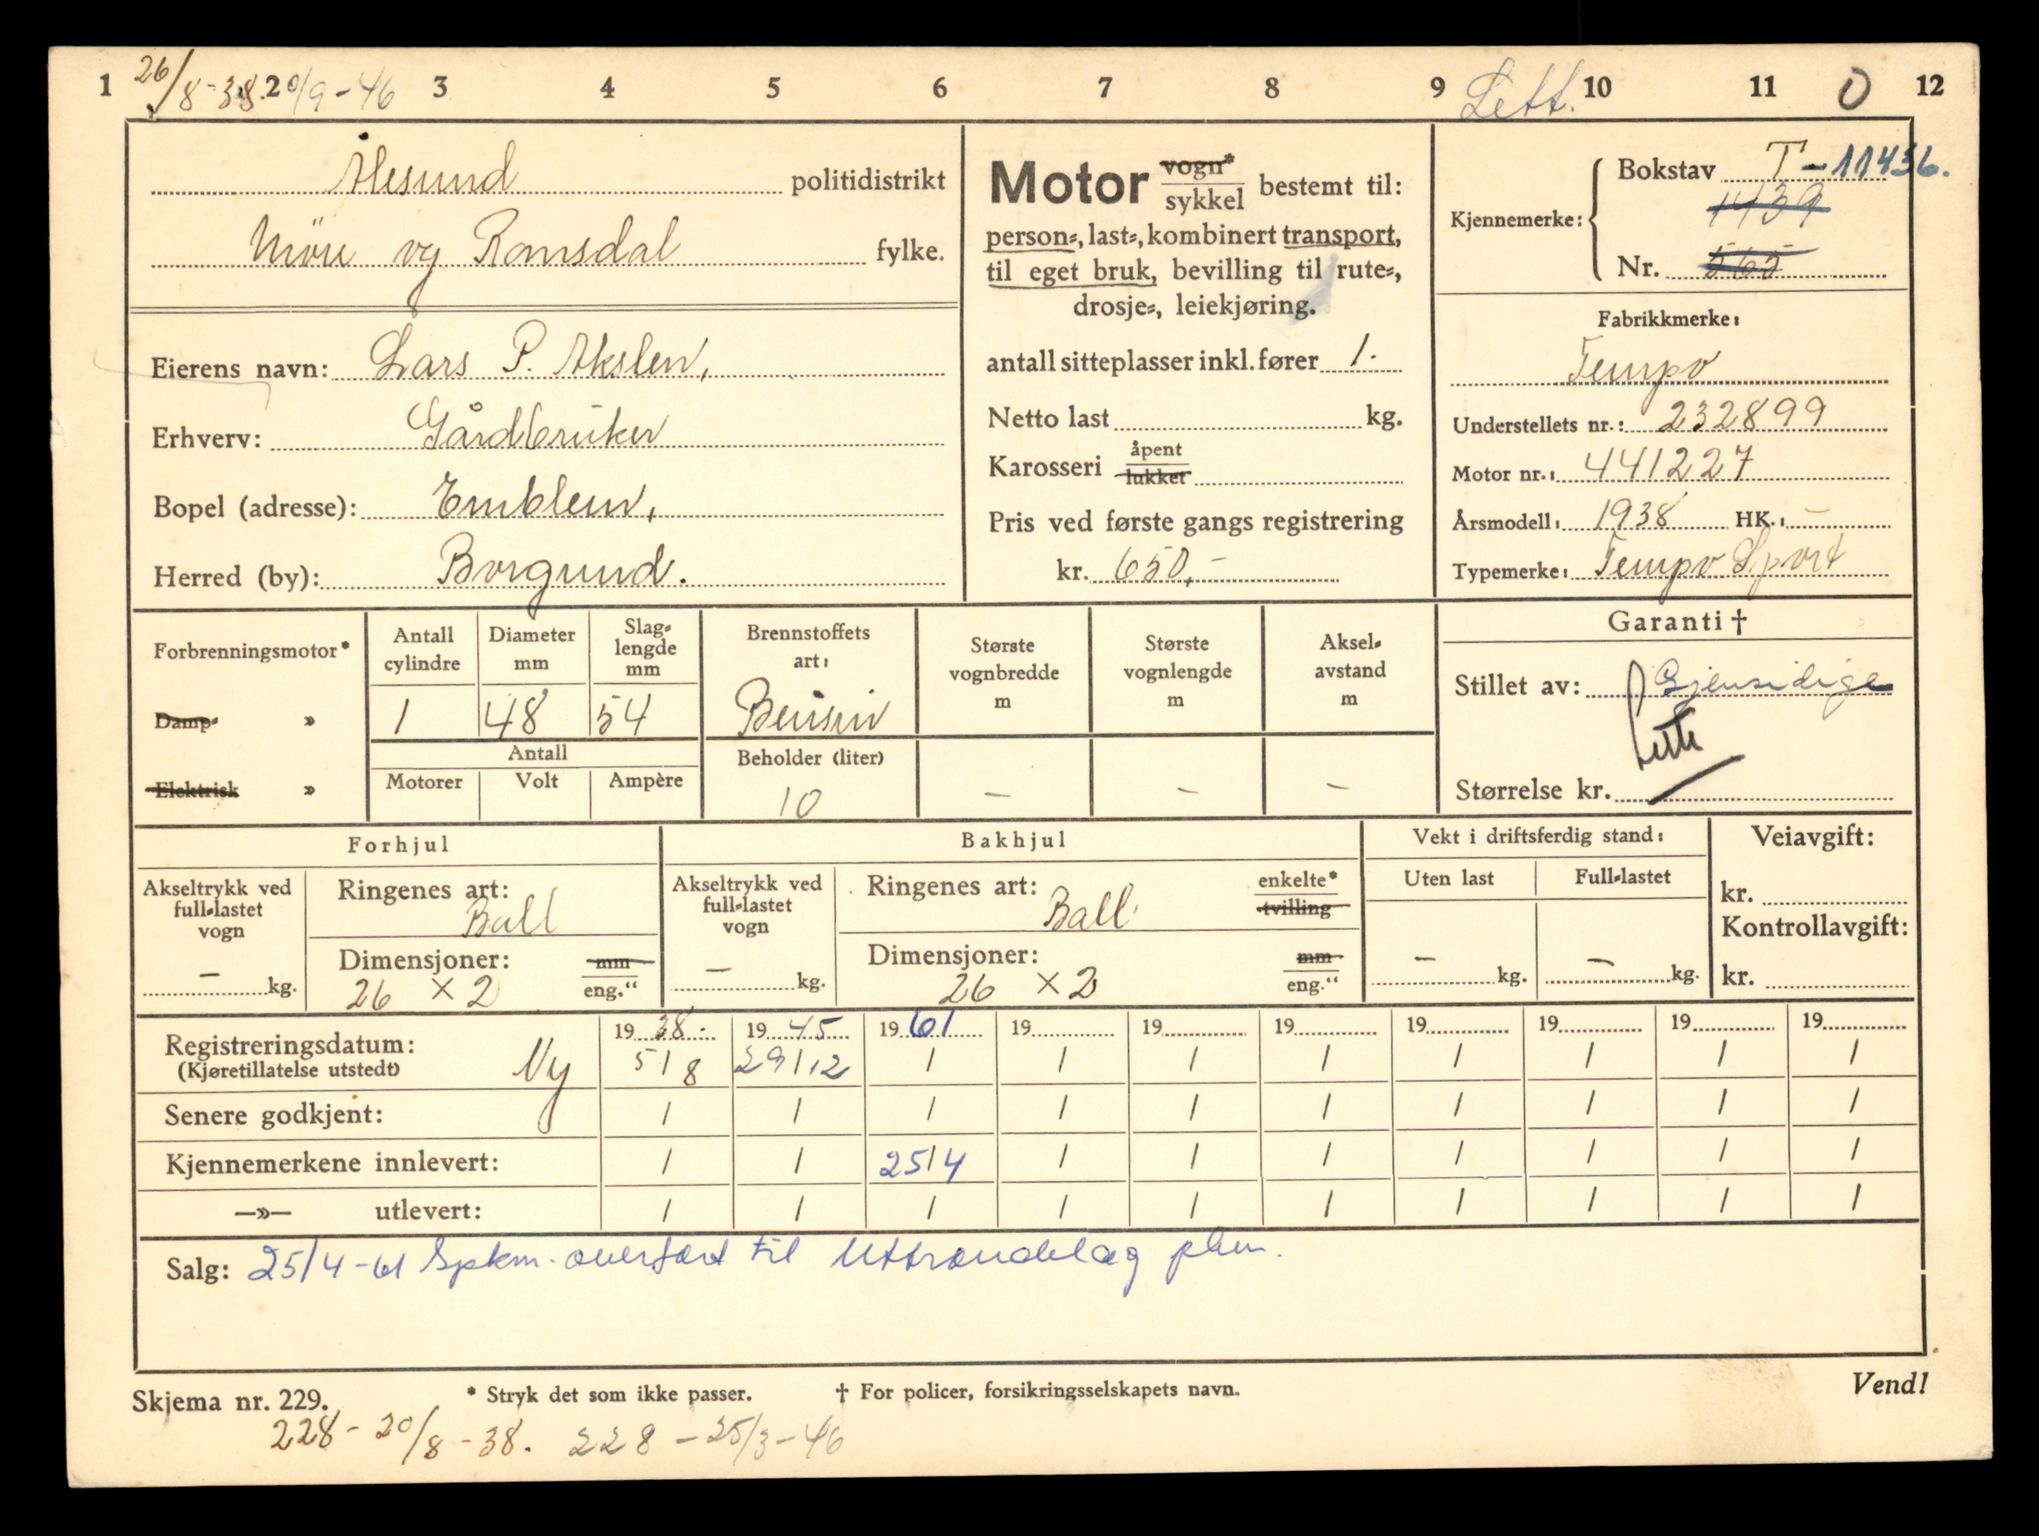 1 2 3 4 5 6 7 8 9 10 11 12
26/8-38. 20/9-46 Lett. O
Ålesund politidistrikt
Möre og Romsdal fylke.
Eierens navn: Lars P. Akslen,
Erhverv: Gårdbruker
Bopel (adresse): Emblem,
Herred (by): Borgund.
Motor vogn* sykkel bestemt til:
person-, last-, kombinert transport,
til eget bruk, bevilling til rute-,
drosje-, leiekjøring.
antall sitteplasser inkl. fører 1.
Netto last kg.
Karosseri åpent lukket
Pris ved første gangs registrering
kr. 650,-
Bokstav T-11436.
Kjennemerke: 1439
Nr. 565
Fabrikkmerke:
Tempo
Understellets nr.: 232899
Motor nr.: 441227
Årsmodell: 1938 HK.: -
Typemerke: Tempo Sport
Forbrenningsmotor*
Damp- »
Elektrisk »
Antall cylindre
1
Diameter mm
48
Slag-
lengde
mm
54
Antall
Motorer Volt Ampère
Brennstoffets
art:
Bensin
Beholder (liter)
10
Største
vognbredde
m
-
Største
vognlengde
m
-
Aksel-
avstand
m
-
Garanti †
Stillet av: Gjensidige
Lette
Størrelse kr.
Forhjul
Akseltrykk ved
full-lastet
vogn
- kg.
Ringenes art:
Ball
Dimensjoner: mm
26 x 2 eng."
Bakhjul
Akseltrykk ved
full-lastet
vogn
- kg.
Ringenes art: enkelte*
Ball. tvilling
Dimensjoner: mm
26 x 2 eng."
Vekt i driftsferdig stand:
Uten last Full-lastet
- kg. - kg.
Veiavgift:
kr.
Kontrollavgift:
kr.
19 38. 19 45 19 61 19 19 19 19 19 19 19
Registreringsdatum: Ny 5/8 29/12 / / / / / / / /
(Kjøretillatelse utstedt)
Senere godkjent: / / / / / / / / / /
Kjennemerkene innlevert: / / 25/4 / / / / / / /
—»— utlevert: / / / / / / / / / /
Salg: 25/4-61 overført til Uttrøndelag
Skjema nr. 229. * Stryk det som ikke passer. † For policer, forsikringsselskapets navn. Vend!
228-20/8-38. 228-25/3-46